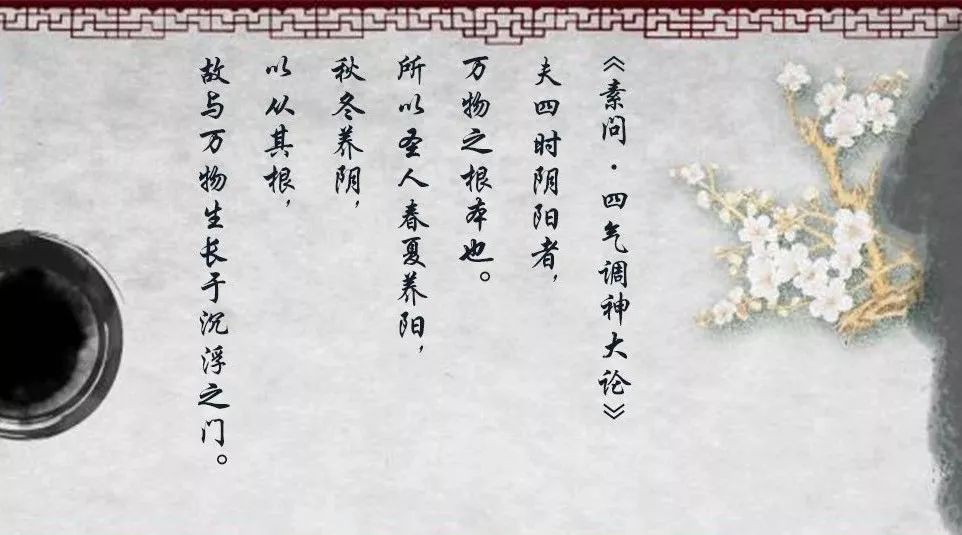 《素问·四气调神大论》
夫四时阴阳者，
万物之根本也。
所以圣人春夏养阳，
秋冬养阴，
以从其根，
故与万物生长于沉浮之门。